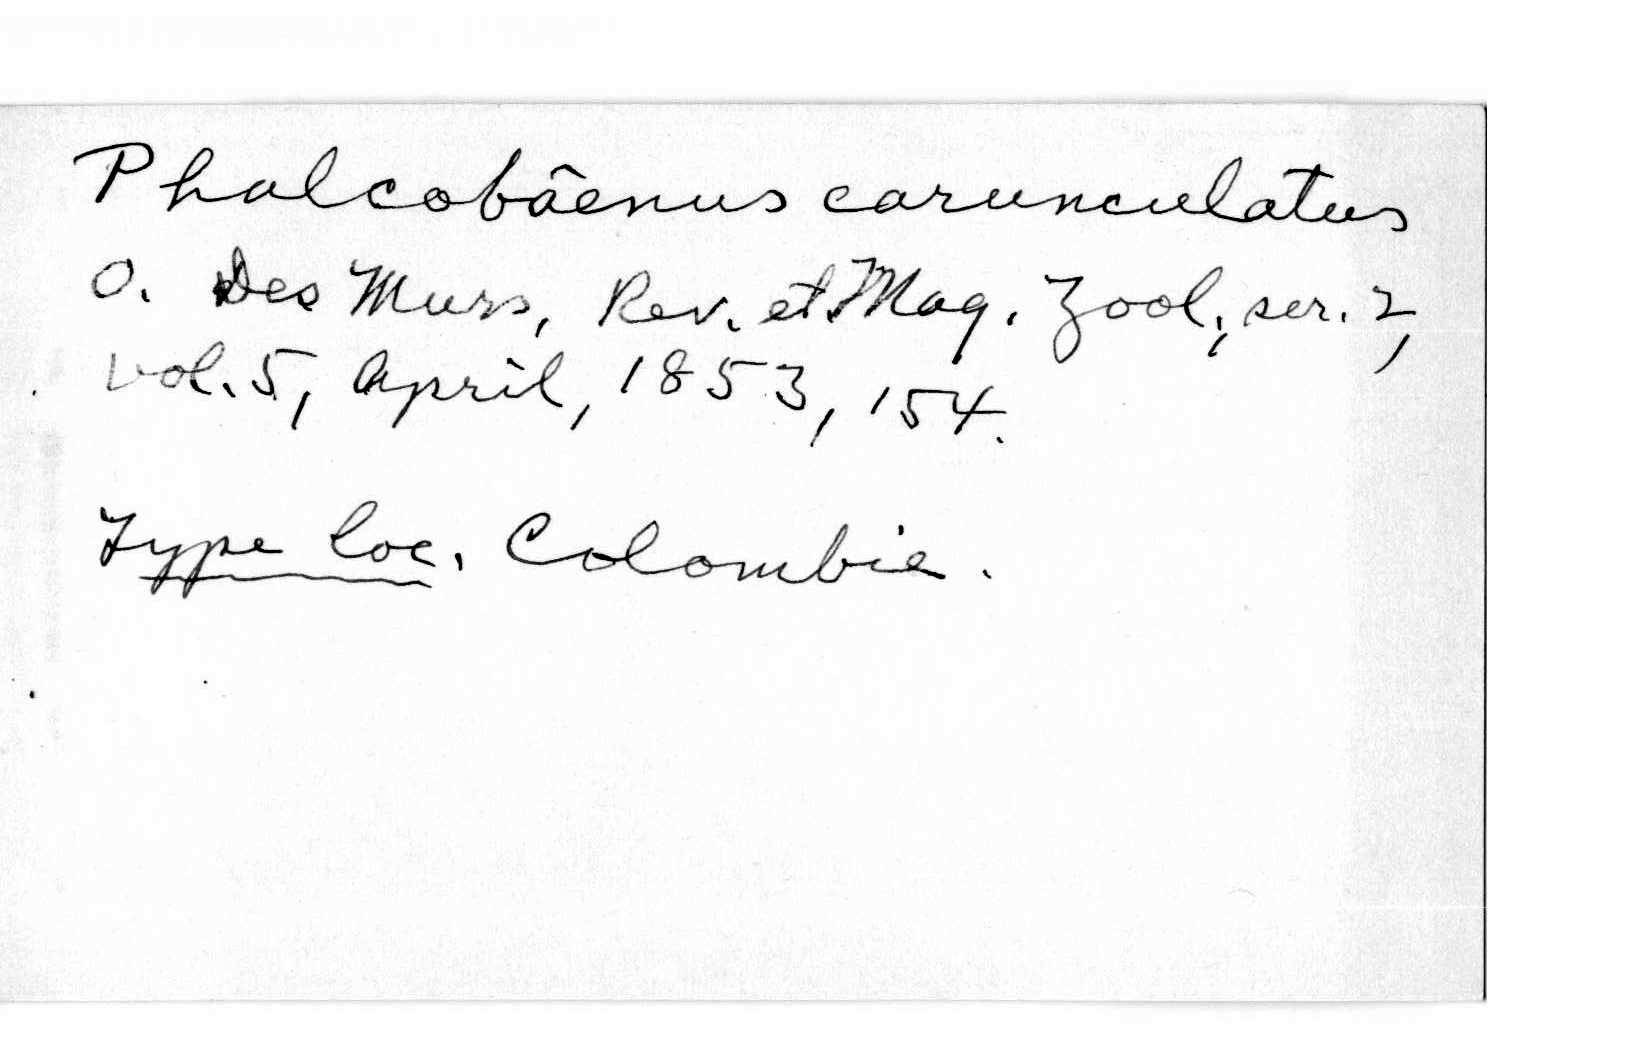 Phalcobâenus carunculatus
O. Des Murs, Rev. et Mag. Zool., ser. 2,
vol. 5, April, 1853, 154.
Type loc. Colombie.